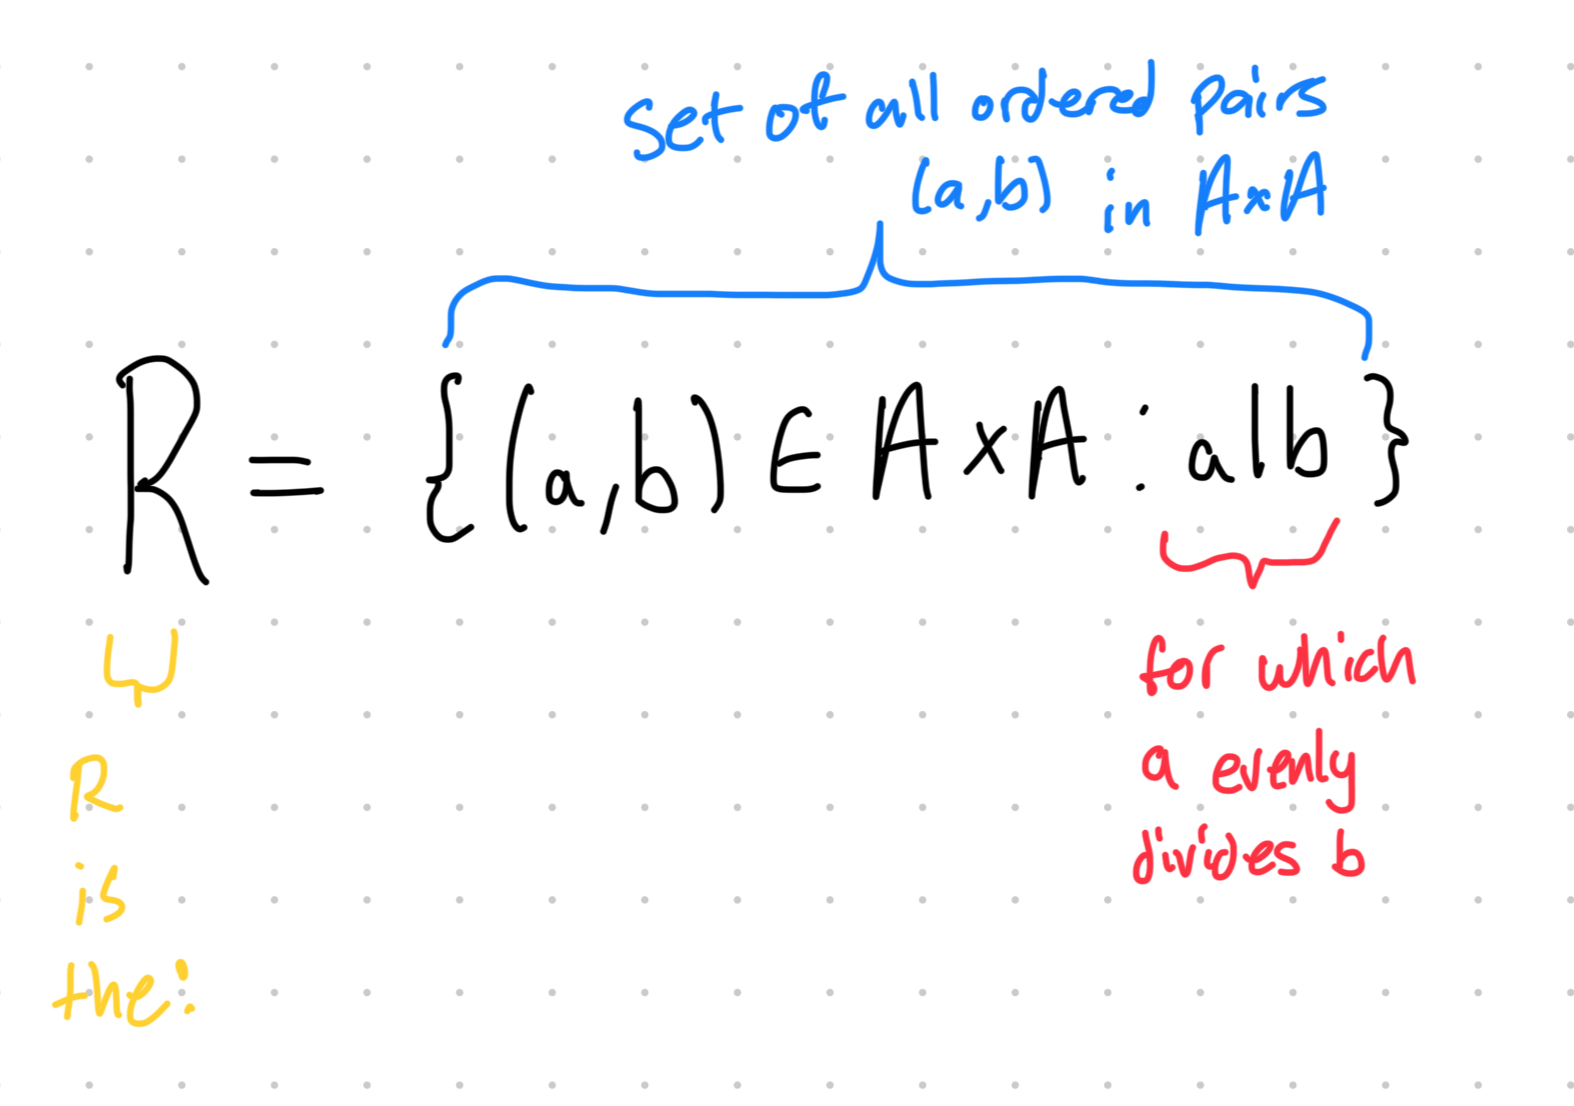 Set of all ordered pairs
(a,b) in A×A
R = {(a,b) ∈ A×A : a|b}
for which
a evenly
divides b
R
is
the: